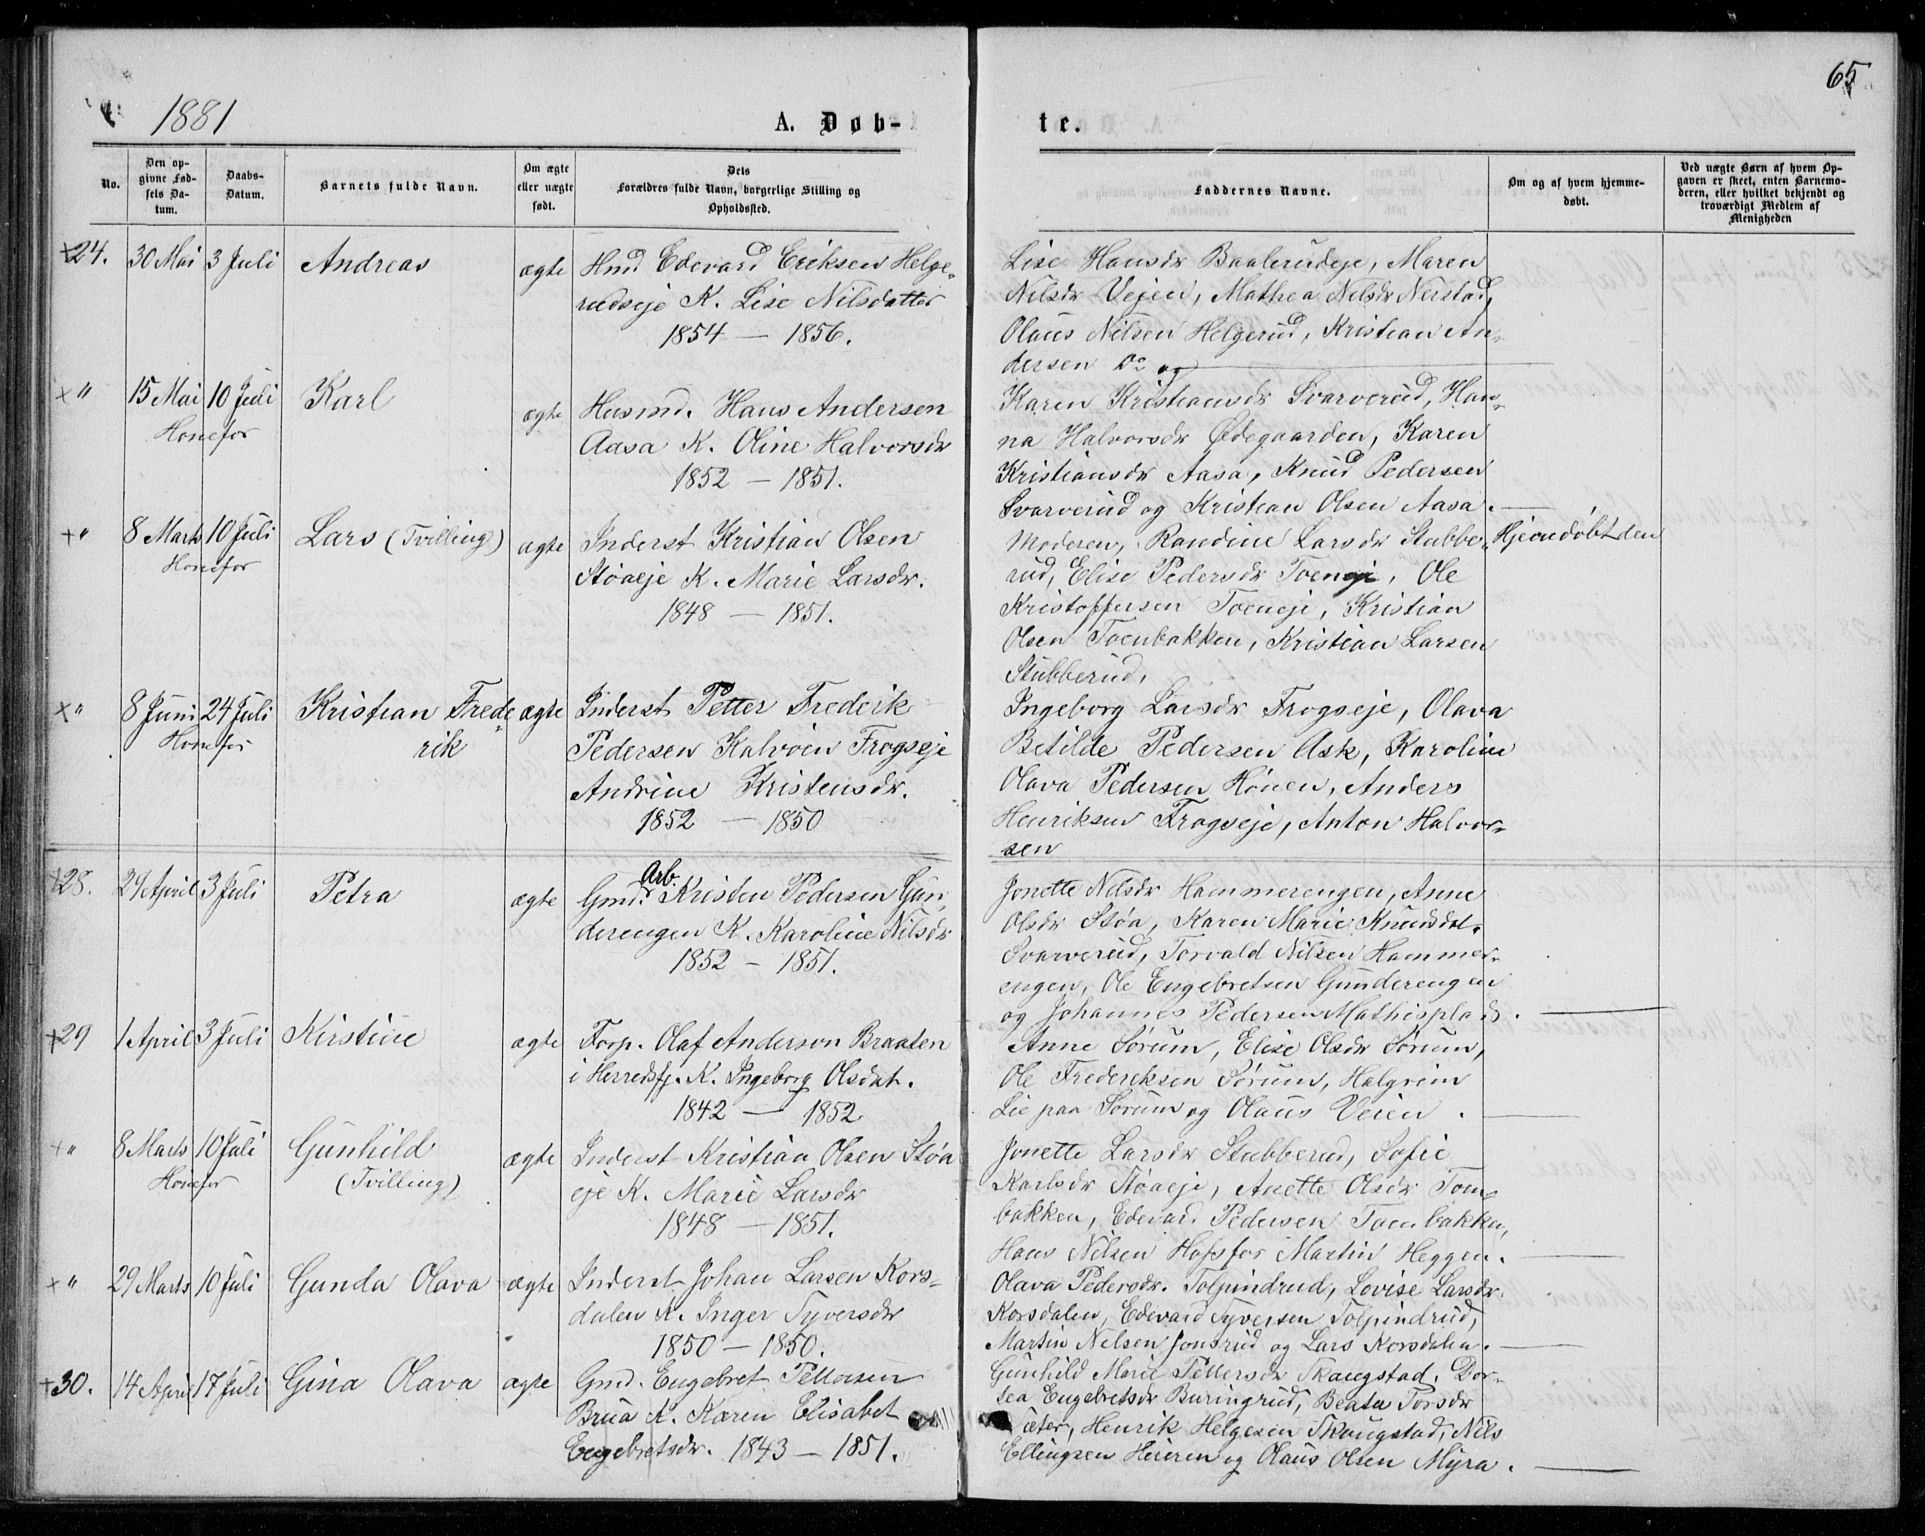 65
1881
A. Døb-
te.
No.
Den op-
givne Fød-
sels Da-
tum.
Daabs-
Datum.
Barnets fulde Navn.
Om ægte
eller uægte
født.
Dets
Forældres fulde Navn, borgerlige Stilling og
Opholdssted.
Faddernes Navne.
Om og af hvem hjemme-
døbt.
Ved uægte Børn af hvem Op-
gaven er skeet, enten Barnemo-
deren, eller hvilket bekjendt og
troværdigt Medlem af
Menigheden
+24. 30 Mai 3 Juli Andreas ægte Hmd Edevard Eriksen Helge-
rudseje K. Lise Nilsdatter
1854 — 1856.
Lise Hansdr Baalerudeje, Maren
Nilsdr Vejen, Mathea Nilsdr Nerstad,
Olaus Nilsen Helgerud, Kristian An-
dersen Do og
+ " 15 Mai 10 Juli Karl ægte Husmd. Hans Andersen
Honefos
Aasa K. Oline Halvorsdr
1852 — 1851.
Karen Kristiansdr Svarverud, Han-
na Halvorsdr Ødegaarden, Karen
Kristiansdr Aasa, Knud Pedersen
Svarverud og Kristian Olsen Aasa.
+ " 8 Marts 10 Juli Lars (Tvilling) ægte Inderst Kristian Olsen
Honefos
Støaeje K. Marie Larsdr.
1848 — 1851.
Moderen, Randine Larsdr Stubbe- Hjemdøbt den
rud, Elise Pedersdr Toeneje, Ole
Kristoffersen Toeneje, Kristian
Olsen Toenbakken, Kristian Larsen
Stubberud.
+ " 8 Juni 24 Juli Kristian Frede- ægte Inderst Petter Frederik
Honefos
rik
Pedersen Kalvøen Frogseje
Andrine Kristensdr.
1852 — 1850
Ingeborg Larsdr Frogseje, Olava
Betilde Pedersen Ask, Karoline
Olava Pedersen Hønen, Anders
Henriksen Frogseje, Anton Halvor-
sen
+28. 24 April 3 Juli Petra ægte Gmd. Arb. Kristen Pedersen Gun-
derengen K. Karoline Nilsdr
1852 — 1851.
Jonette Nilsdr Hammerengen, Anne
Olsdr Støa, Karen Marie Knudsdat.
Svarverud, Torvald Nilsen Hammer-
engen, Ole Engebretsen Gunderengen
og Johannes Pedersen Mathisplads.
+29 1 April 3 Juli Kirstine ægte Forp. Olaf Anderson Braaten
i Herredsfj. K. Ingeborg Olsdat.
1842 — 1852
Anne Sørum, Elise Olsdr Sørum,
Ole Frederiksen Sørum, Halgrim
Lie paa Sørum og Olaus Veien.
+ " 8 Marts 10 Juli Gunhild ægte Inderst Kristian Olsen Støa
Honefos
(Tvilling)
eje K. Marie Larsdr
1848 — 1851.
Jonette Larsdr Stubberud, Sofie
Karlsdr Støaeje, Anette Olsdr Toen-
bakken, Edevard Pedersen Toenbakken,
Hans Nilsen Hofsfos Martin Heggen.
+ " 29 Marts 10 Juli Gunda Olava ægte Inderst Johan Larsen Kors-
dalen K. Inger Tyversdr
1850 — 1850.
Olava Pedersdr. Tolpindrud, Lovise Larsdr
Korsdalen, Edevard Tyversen Tolpindrud,
Martin Nelsen Jonsrud og Lars Korsdalen.
+30. 14 April 17 Juli Gina Olava ægte Gmd. Engebret Pettersen
Brua K. Karen Elisabet
Engebretsdr. 1843 — 1851.
Gunhild Marie Pettersdr Skaugstad, Dor-
tea Engebretsdr Buringrud, Beate Torsdr
Sæter, Henrik Helgesen Skaugstad, Nils
Ellingsen Heieren og Olaus Olsen Myra.